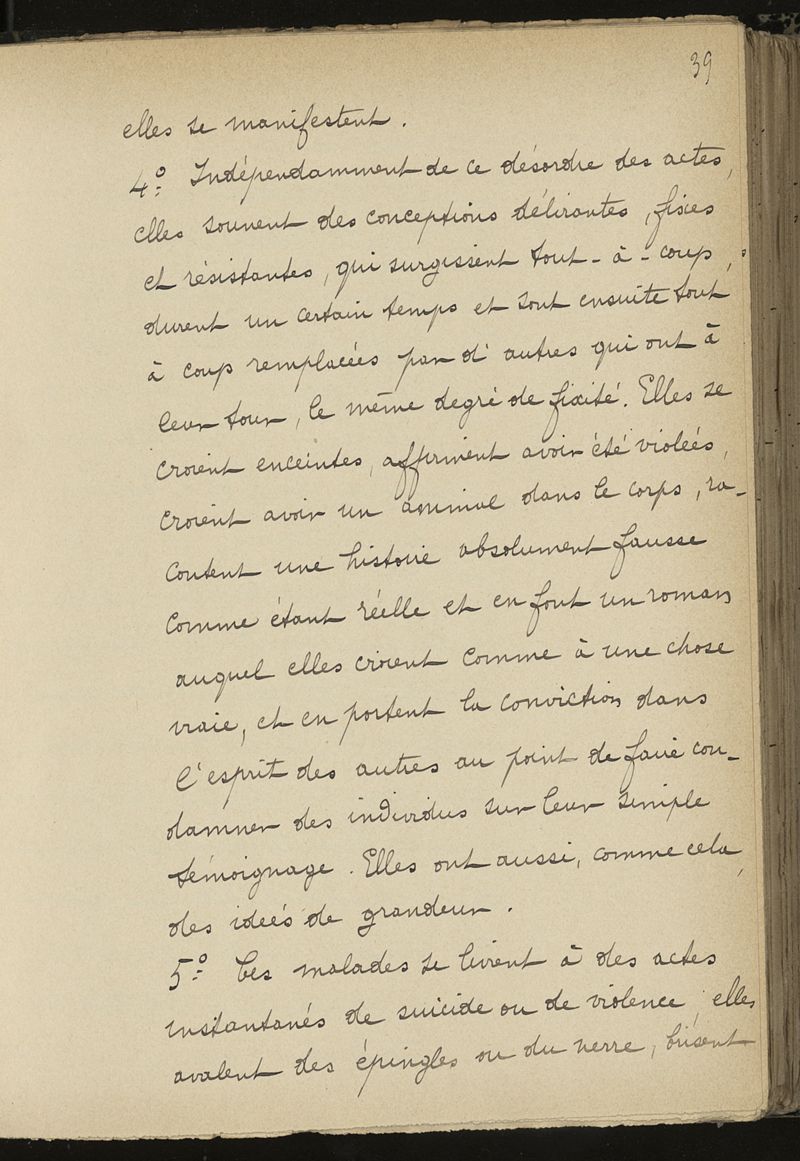 39
elles se manifestent.
4º Indépendamment de ce désordre des actes,
elles souvent des conceptions délirantes, fixes
et résistantes, qui surgissent tout-à-coup,
durent un certain temps et sont ensuite tout
à coup remplacées par d'autres qui ont à
leur tour, le même degré de fixité. Elles se
croient enceintes, affirment avoir été violées,
croient avoir un animal dans le corps, ra-
content une histoire absolument fausse
comme étant réelle et en font un roman
auquel elles croient comme à une chose
vraie, et en portent la conviction dans
l'esprit des autres au point de faire con-
damner des individus sur leur simple
témoignage. Elles ont aussi, comme cela,
des idées de grandeur.
5º Ces malades se livrent à des actes
instantanés de suicide ou de violence, elles
avalent des épingles ou du verre, brisent